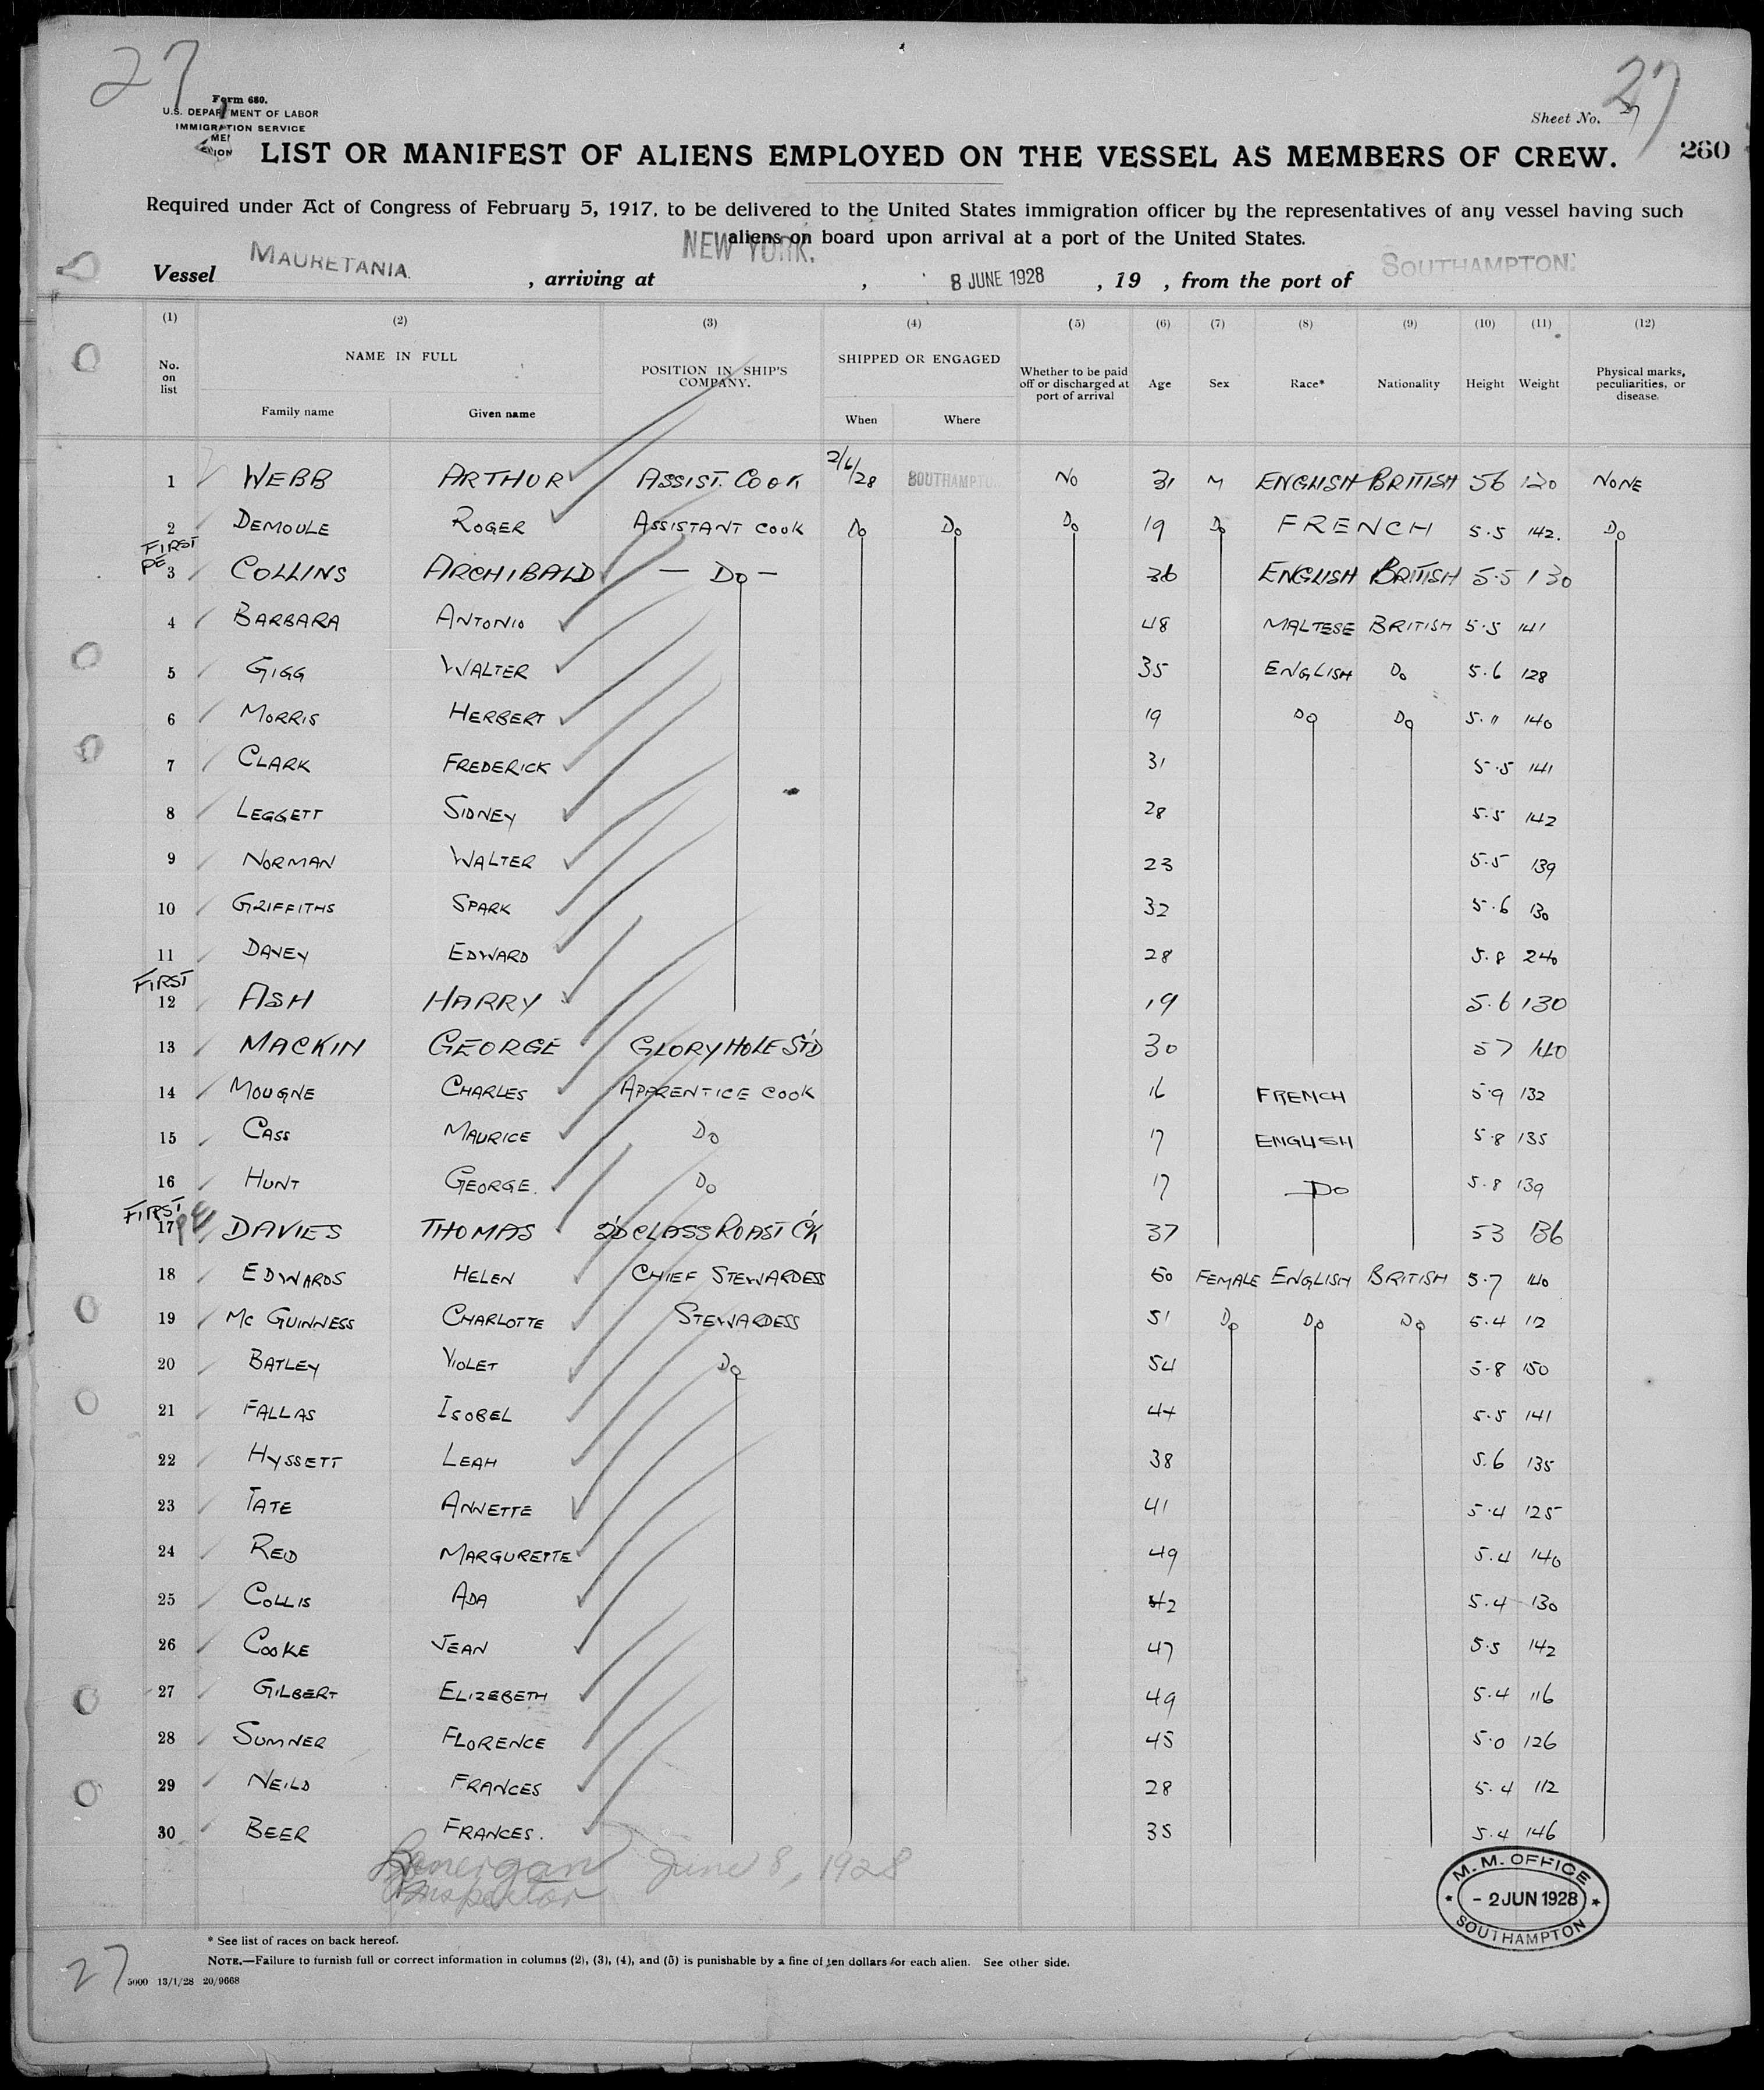 27
27
Form 680.
U.S. DEPARTMENT OF LABOR
IMMIGRATION SERVICE
Sheet No. 27
260
LIST OR MANIFEST OF ALIENS EMPLOYED ON THE VESSEL AS MEMBERS OF CREW.
Required under Act of Congress of February 5, 1917, to be delivered to the United States immigration officer by the representatives of any vessel having such
aliens on board upon arrival at a port of the United States.
Vessel MAURETANIA. , arriving at NEW YORK. , 8 JUNE 1928 , 19 , from the port of SOUTHAMPTON.
(1) (2) (3) (4) (5) (6) (7) (8) (9) (10) (11) (12)
No. on list NAME IN FULL Family name Given name POSITION IN SHIP'S COMPANY. SHIPPED OR ENGAGED When Where Whether to be paid off or discharged at port of arrival Age Sex Race* Nationality Height Weight Physical marks, peculiarities, or disease.
1 WEBB ARTHUR ASSIST. COOK 2/6/28 SOUTHAMPTON No 31 M ENGLISH BRITISH 56 120 NONE
2 DEMOULE ROGER ASSISTANT COOK Do Do Do 19 Do FRENCH 5.5 142. Do
FIRST
3 COLLINS ARCHIBALD — Do — 36 ENGLISH BRITISH 5.5 130
4 BARBARA ANTONIO 48 MALTESE BRITISH 5.5 141
5 GIGG WALTER 35 ENGLISH Do 5.6 128
6 MORRIS HERBERT 19 Do Do 5.11 140
7 CLARK FREDERICK 31 5.5 141
8 LEGGETT SIDNEY 28 5.5 142
9 NORMAN WALTER 23 5.5 139
10 GRIFFITHS SPARK 32 5.6 130
11 DAVEY EDWARD 28 5.8 240
FIRST
12 ASH HARRY 19 5.6 130
13 MACKIN GEORGE GLORY HOLE ST'D 30 57 140
14 MOUGNE CHARLES APPRENTICE COOK 16 FRENCH 5.9 132
15 CASS MAURICE Do 17 ENGLISH 5.8 135
16 HUNT GEORGE. Do 17 Do 5.8 139
FIRST
17 DAVIES THOMAS 2'D CLASS ROAST C'K 37 53 136
18 EDWARDS HELEN CHIEF STEWARDESS 50 FEMALE ENGLISH BRITISH 5.7 140
19 Mc GUINNESS CHARLOTTE STEWARDESS 51 Do Do Do 5.4 112
20 BATLEY VIOLET Do 54 5.8 150
21 FALLAS ISOBEL 44 5.5 141
22 HYSSETT LEAH 38 5.6 135
23 TATE ANNETTE 41 5.4 125
24 REID MARGURETTE 49 5.4 140
25 COLLIS ADA 42 5.4 130
26 COOKE JEAN 47 5.5 142
27 GILBERT ELIZEBETH 49 5.4 116
28 SUMNER FLORENCE 45 5.0 126
29 NEILD FRANCES 28 5.4 112
30 BEER FRANCES. 35 5.4 146
June 8, 1928
Inspector
M. M. OFFICE
- 2 JUN 1928
SOUTHAMPTON
* See list of races on back hereof.
NOTE.—Failure to furnish full or correct information in columns (2), (3), (4), and (5) is punishable by a fine of ten dollars for each alien. See other side.
27
5000 13/1/28 20/9668